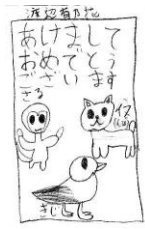 渡辺
あけまして
おめでとう
ございます
さる
イヌ
きじ